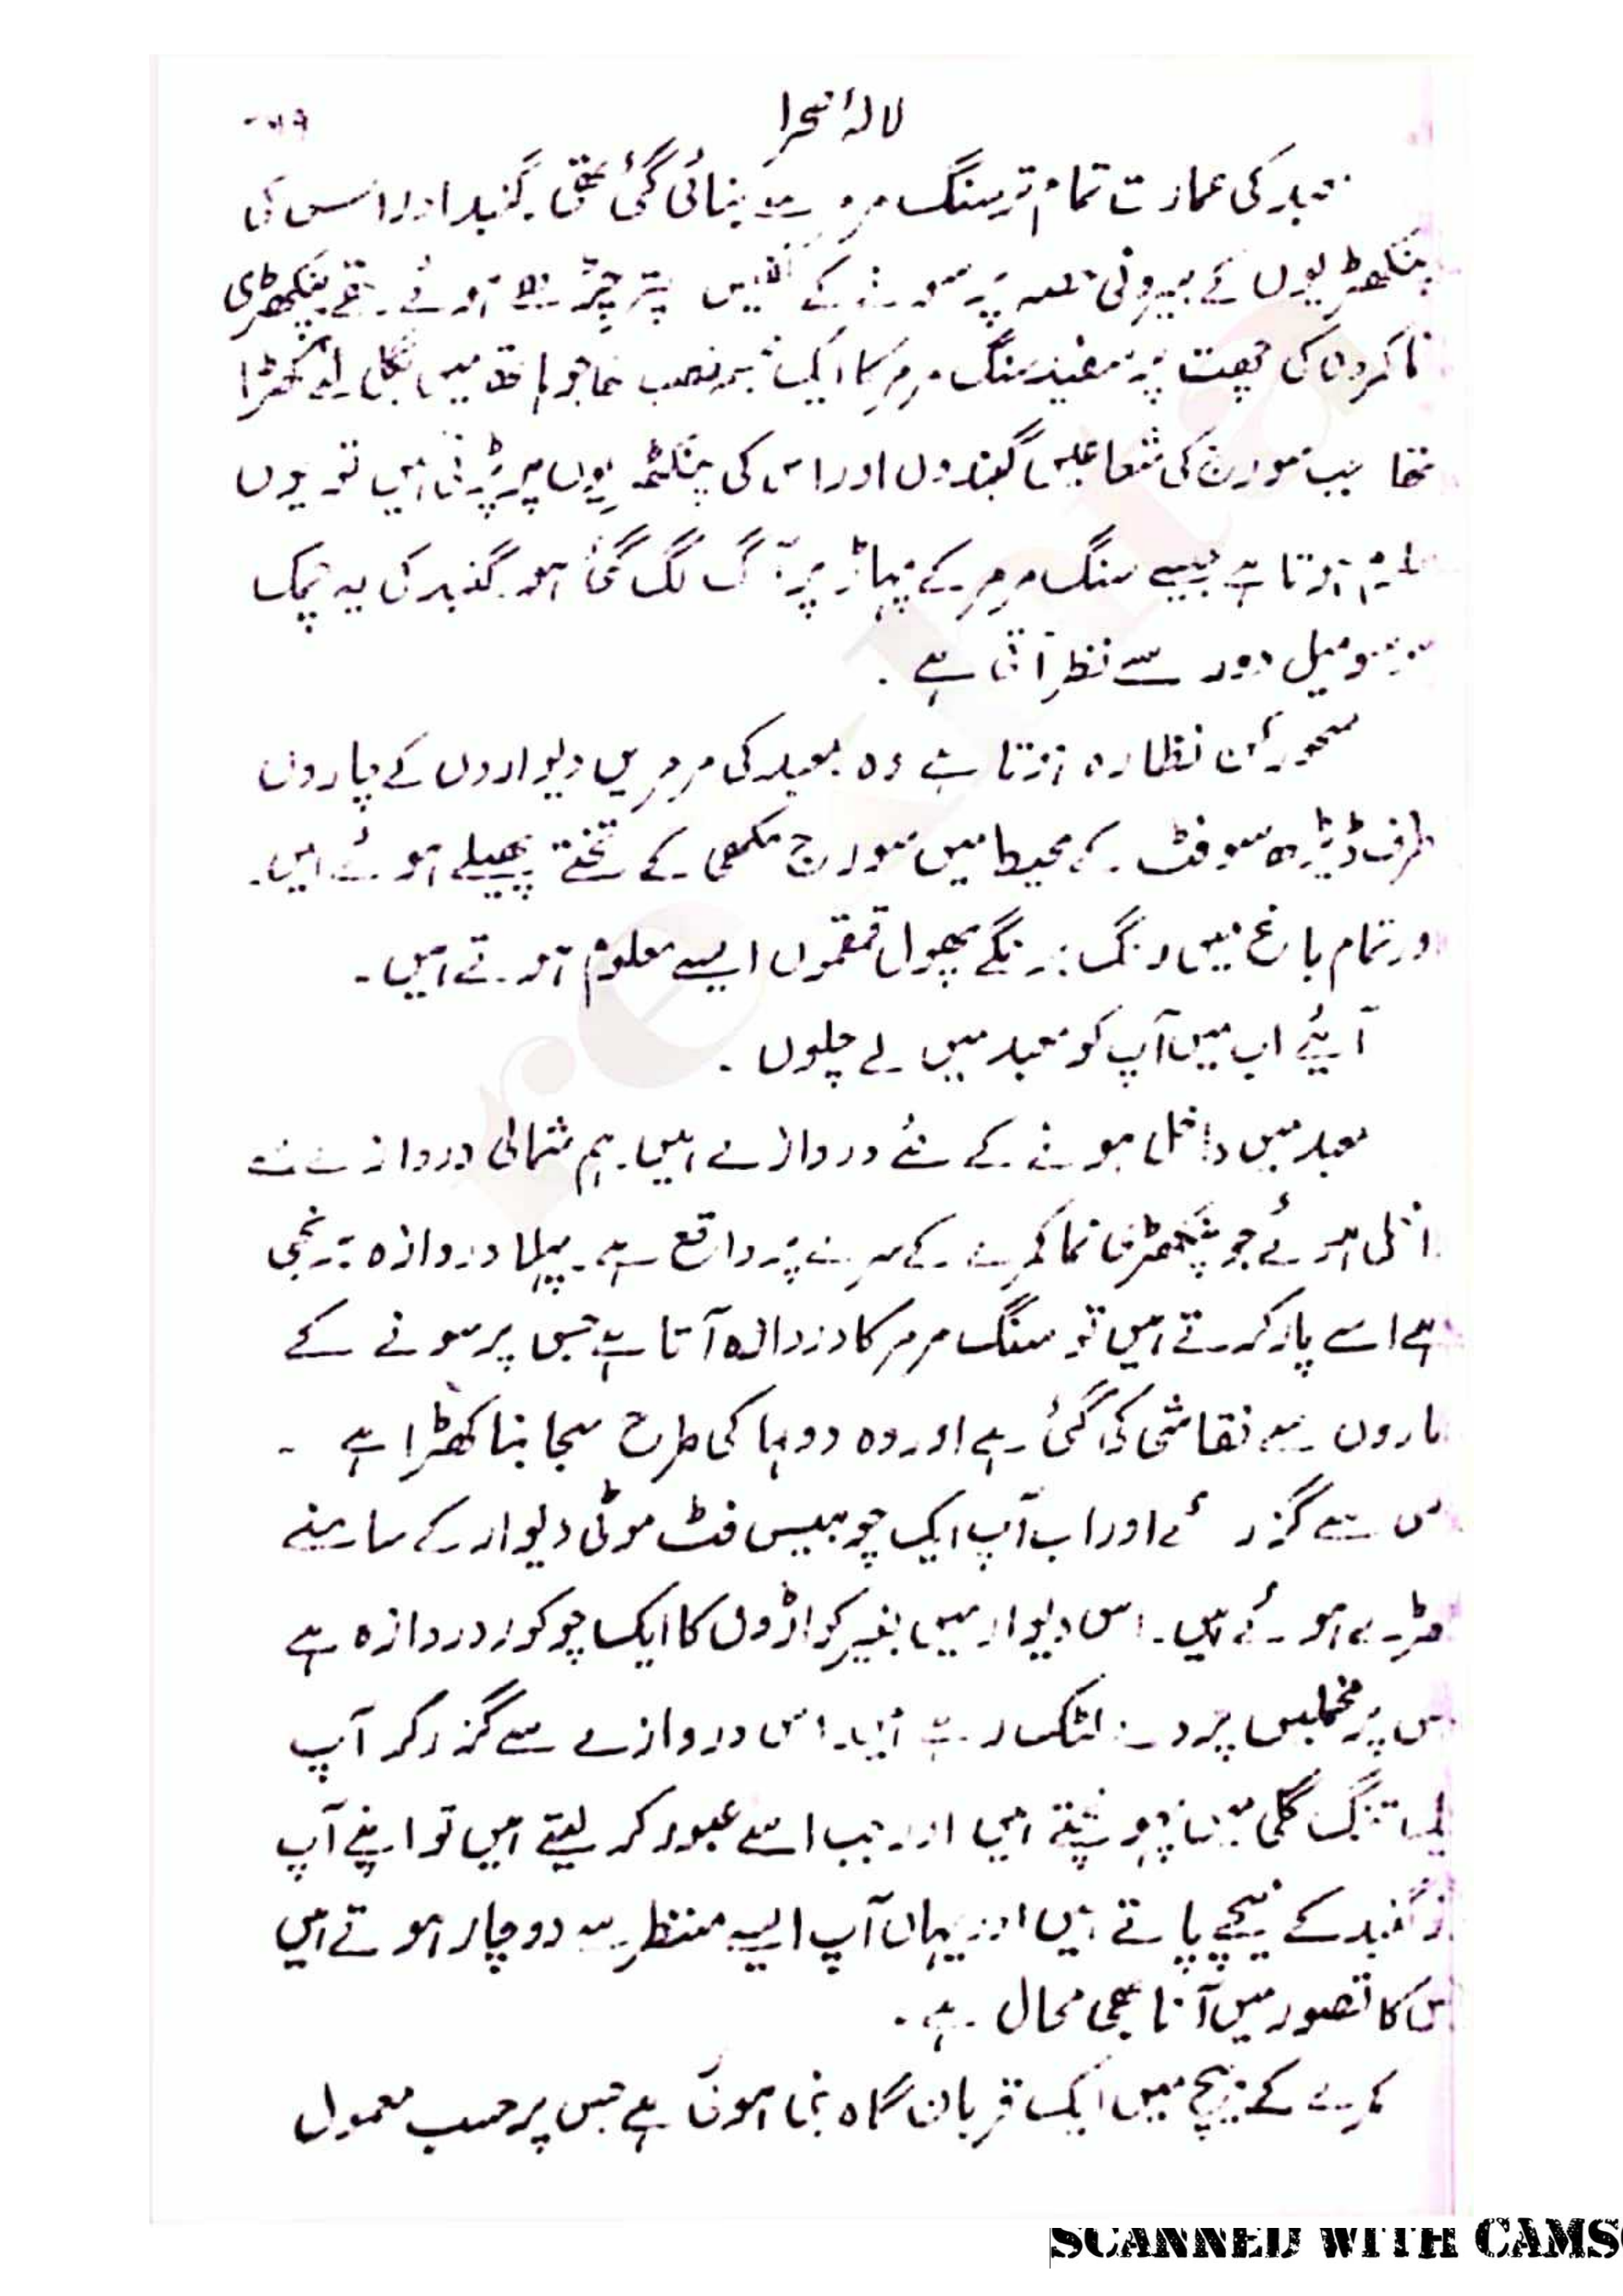 لالۂ صحرا
معبد کی عمارت تمام تر سنگ مرمر سے بنائی گئی تھی۔ گنبد اور اس کی
پنکھڑیوں کے بیرونی حصہ پر سونے کے نفیس پتر چڑھے ہوئے تھے پنکھڑی
نما کمروں کی چھت پر سفید سنگ مرمر کا ایک مجسمہ نصب تھا جو ہاتھ میں بگل لئے کھڑا
تھا جب سورج کی شعاعیں گنبدوں اور اس کی پنکھڑیوں پر پڑتی ہیں تو یوں
ہوتا ہے جیسے سنگ مرمر کے پہاڑ پر آگ لگ گئی ہو۔ گنبد کی یہ چمک
سو میل دور سے نظر آتی ہے۔
سحور کن نظارہ ہوتا ہے وہ معبد کی مرمریں دیواروں کے چاروں
طرف ڈیڑھ سو فٹ کے محیط میں سورج مکھی کے تختے پھیلے ہوئے ہیں۔
ور تمام باغ میں رنگ برنگے پھول قمقموں ایسے معلوم ہوتے ہیں۔
آیئے اب میں آپ کو معبد میں لے چلوں۔
معبد میں داخل ہونے کے کئے دروازے ہیں۔ ہم شمالی دروازے سے
اخل ہوئے جو پنکھڑی نما کمرے کے سرے پر واقع ہے۔ پہلا دروازہ برنجی
ہے اسے پار کرتے ہیں تو سنگ مرمر کا دروازہ آتا ہے جس پر سونے کے
اروں سے نقاشی کی گئی ہے اور وہ دوہا کی طرح سجا بنا کھڑا ہے ۔
س سے گزر ئے اور اب آپ ایک چوبیس فٹ موٹی دیوار کے سامنے
ھڑے ہوئے ہیں۔ اس دیوار میں بغیر کواڑوں کا ایک چوکور دروازہ ہے
س پر مخملیں پردے لٹک رہے ہیں۔ اس دروازے سے گزر کر آپ
یک تنگ گلی میں پہونچتے ہیں اور جب اسے عبور کر لیتے ہیں تو اپنے آپ
گنبد کے نیچے پاتے ہیں اور یہاں آپ ایسے منظر سے دوچار ہوتے ہیں
س کا تصور میں آنا بھی محال ہے۔
کمرے کے بیچ میں ایک قربان گاہ بنی ہوئی ہے جس پر حسب معمول
SCANNED WITH CAMS